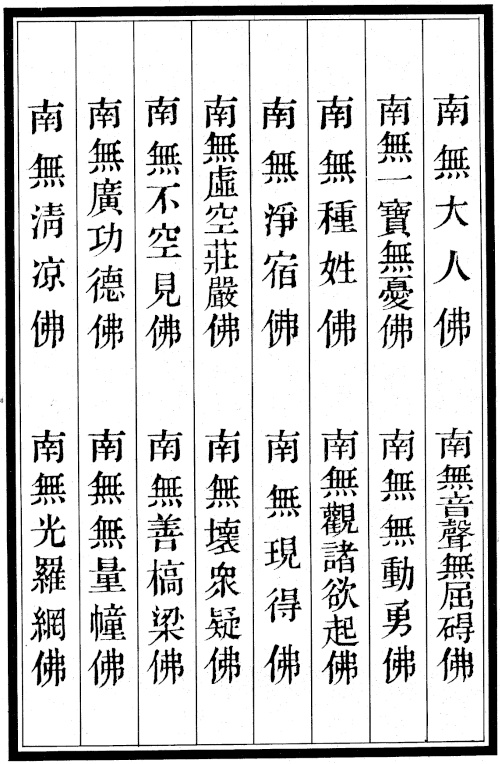 南無大人佛　南無音聲無屈碍佛
南無一寶無憂佛　南無無動勇佛
南無種姓佛　南無觀諸欲起佛
南無淨宿佛　南無現得佛
南無虛空莊嚴佛　南無壞衆疑佛
南無不空見佛　南無善槁梁佛
南無廣功德佛　南無無量幢佛
南無清凉佛　南無光羅網佛